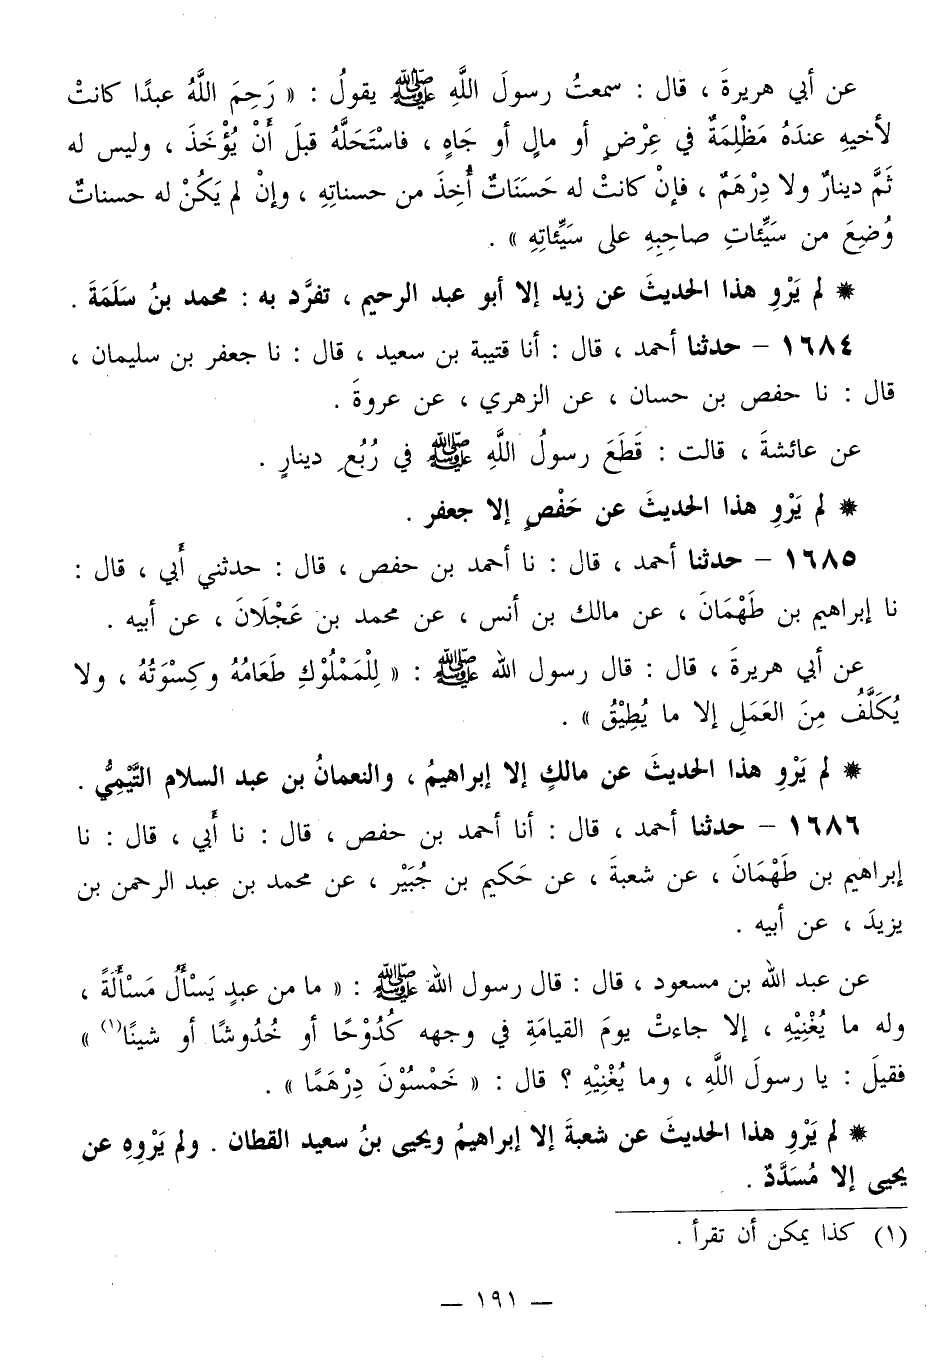 عن أبي هريرةَ ، قال : سمعتُ رسولَ اللَّهِ ﷺ يقولُ : « رَحِمَ اللَّهُ عبدًا كانتْ
لأخيهِ عندَهُ مَظْلِمَةٌ في عِرْضٍ أو مالٍ أو جَاهٍ ، فاسْتَحَلَّهُ قبلَ أَنْ يُؤْخَذَ ، وليس له
ثَمَّ دينارٌ ولا دِرْهَمٌ ، فإنْ كانتْ له حَسَنَاتٌ أُخِذَ من حسناتِهِ ، وإنْ لم يَكُنْ له حسناتٌ
وُضِعَ من سَيِّئاتِ صاحِبِهِ على سَيِّئاتِهِ » .
* لم يَرْوِ هذا الحديثَ عن زيد إلا أبو عبد الرحيم ، تفرَّد به : محمد بنُ سَلَمَةَ .
١٦٨٤ - حدثنا أحمد ، قال : أنا قتيبة بن سعيد ، قال : نا جعفر بن سليمان ،
قال : نا حفص بن حسان ، عن الزهري ، عن عروةَ .
عن عائشةَ ، قالت : قَطَعَ رسولُ اللَّهِ ﷺ في رُبُعِ دينارٍ .
* لم يَرْوِ هذا الحديثَ عن حَفْصٍ إلا جعفر .
١٦٨٥ - حدثنا أحمد ، قال : نا أحمد بن حفص ، قال : حدثني أَبي ، قال :
نا إبراهيم بن طَهْمَانَ ، عن مالك بن أنس ، عن محمد بن عَجْلَانَ ، عن أبيه .
عن أبي هريرةَ ، قال : قال رسول الله ﷺ : « لِلْمَمْلُوْكِ طَعَامُهُ وكِسْوَتُهُ ، ولا
يُكَلَّفُ مِنَ العَمَلِ إلا ما يُطِيْقُ » .
* لم يَرْوِ هذا الحديثَ عن مالكٍ إلا إبراهيمُ ، والنعمانُ بن عبد السلام التَّيْمِيُّ .
١٦٨٦ - حدثنا أحمد ، قال : أنا أحمد بن حفص ، قال : نا أَبي ، قال : نا
إبراهيم بن طَهْمَانَ ، عن شعبةَ ، عن حَكيم بن جُبَيْر ، عن محمد بن عبد الرحمن بن
يزيدَ ، عن أبيه .
عن عبد الله بن مسعود ، قال : قال رسول الله ﷺ : « ما من عبدٍ يَسْأَلُ مَسْأَلَةً ،
وله ما يُغْنِيْهِ ، إلا جاءتْ يومَ القيامَةِ في وجهه كُدُوْحًا أو خُدُوشًا أو شينًا(١) »
فقيلَ : يا رسولَ اللَّهِ ، وما يُغْنِيْهِ ؟ قال : « خَمْسُوْنَ دِرْهَمًا » .
* لم يَرْوِ هذا الحديثَ عن شعبةَ إلا إبراهيمُ ويحيى بنُ سعيد القطان . ولم يَرْوِهِ عن
يحيى إلا مُسَدَّدٌ .
(١) كذا يمكن أن تقرأ .
— ١٩١ —